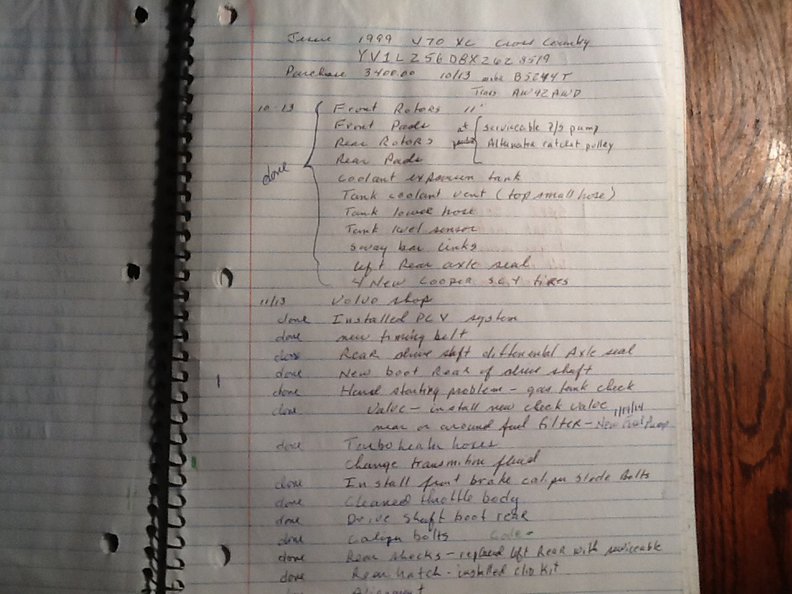 1999 V70 XC Cross Country
YV1LZ56DBX2628519
Purchase 3400.00 10/13 B5244T
Trans AW42AWD
10-13 Front Rotors 11"
Front Pads at serviceable P/S pump
Rear Rotors Alternator ratchet pulley
Rear Pads
done coolant expansion tank
Tank coolant vent (top small hose)
Tank lower hose
Tank level sensor
sway bar links
left Rear axle seal
4 New Cooper tires
11/13 Volvo shop
done Installed PCV system
done new timing belt
done Rear drive shaft differential Axle seal
done New boot Rear of drive shaft
done Hard starting problem - gas tank check
done Valve - install new check valve
near or around fuel filter - New Fuel Pump
done Turbo heater hoses
change transmition fluid
done Install front brake caliper slide bolts
done Cleaned throttle body
done Drive shaft boot rear
done caliper bolts
done Rear shocks - replaced left Rear with serviceable
done Rear hatch - installed clip kit
Alignment